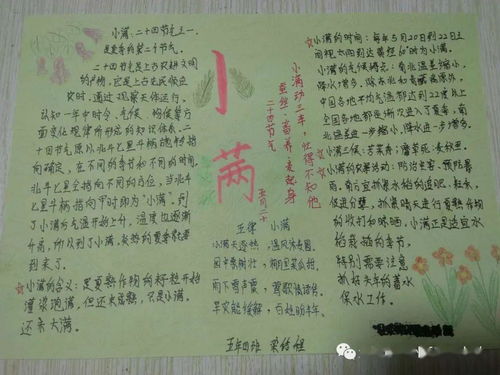 小满,二十四节气之一,
是夏季的第二个节气。
二十四节气是上古农耕文明
的产物,它是上古先民顺应
农时,通过观察天体运行,
认知一年中时令、气候、物候等方
面变化规律所形成的知识体系。二
十四节气原以北斗七星斗柄旋转指
向确定,在不同的季节和不同的时间,
北斗七星会指向不同的方位,当北斗
七星斗柄指向甲时即为“小满”。到
了小满气温开始上升,温度也逐渐
升高,所以到了小满,
到来了。
小满的含义:是夏熟作物的籽粒开始
灌浆饱满,但还未成熟,只是小满,
还未大满。
小满
二十四节气
小满动三车,忙得不知他
五月二十
五律 小满
小满天逐热,温风沐麦圆。
园中桑树壮,棚里菜瓜甜。
雨下雷声震,莺歌
旱灾能缓解,百姓盼丰年。
五年四班
小满的时间:每年5月20日到22日之
间视太阳到达黄经60°时为小满。
小满的气候特点:南北温差缩小,
降水增多,除东北和青藏高原外,
中国各地平均气温都达到22度以上
全国各地都是渐次进入了夏季,南
北温差进一步缩小,降水进一步增多。
小满三候:苦菜秀;靡草死;麦秋至。
小满的农事活动:防治虫害,预防暴
雨,南方宜抓紧水稻的追肥、耘禾,
促进分蘖,抓紧晴天进行夏熟作物
的收打和晾晒。小满正是适宜水
稻栽插的季节,
特别需要注意
抓好头年的蓄水
保水工作。